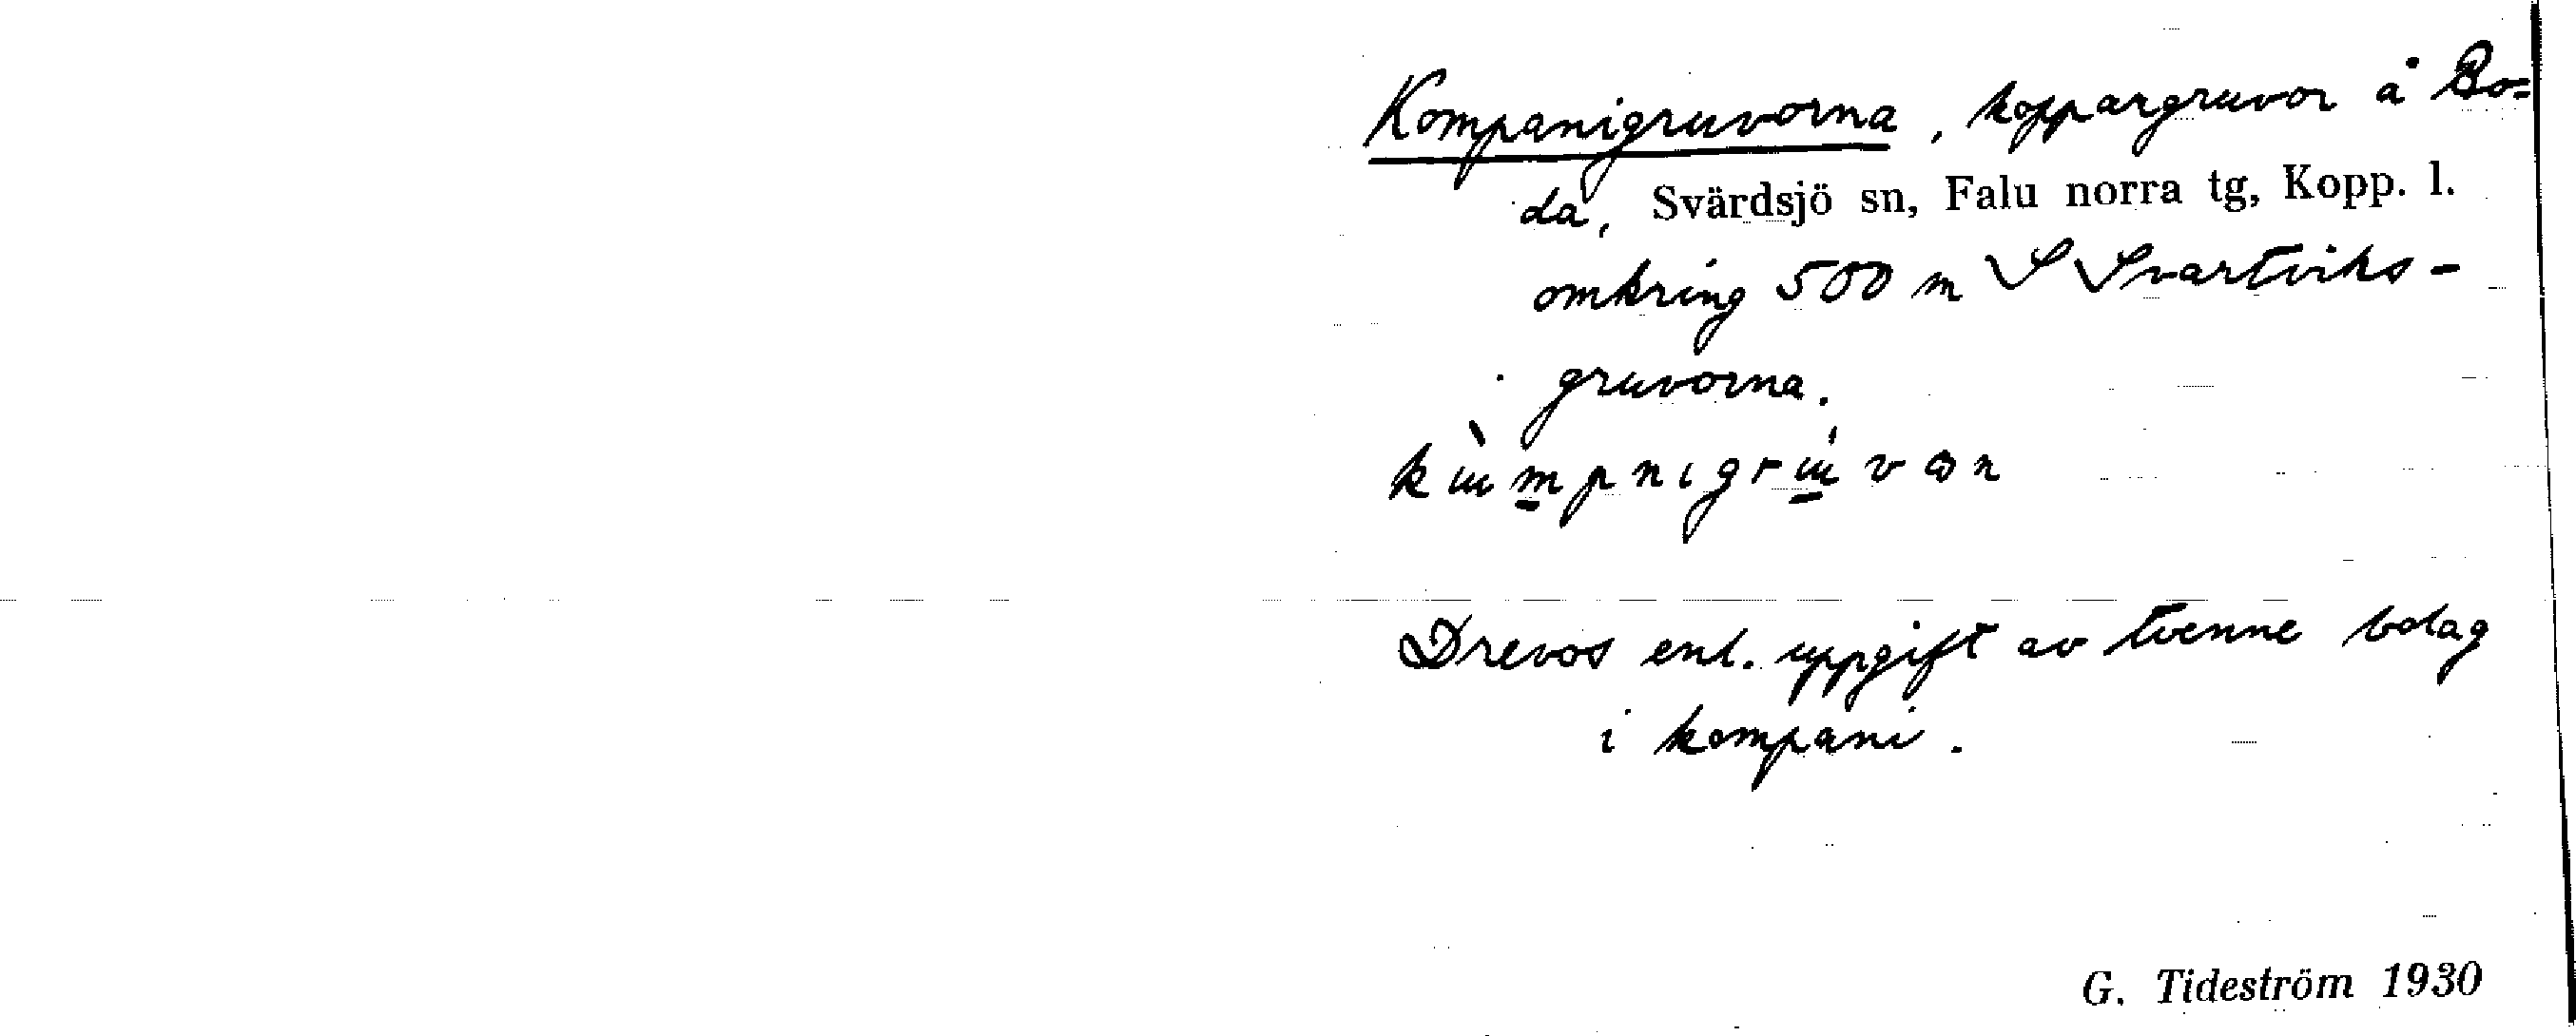 Kompanigruvorna, koppargruvor å Bo=
da, Svärdsjö sn, Falu norra tg, Kopp. l.
omkring 500 m S Svartviks-
gruvorna.
Drevos enl. uppgift av tvenne bolag
i kompani.
G. Tideström 1930